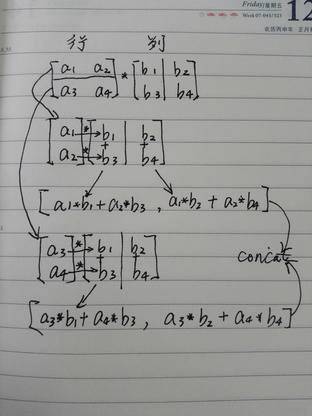 Friday/星期五
12
Week 07-043/323
农历丙申年·正月
行 列
[a1 a2 a3 a4] * [b1 b2 b3 b4]
[a1 a2] * [b1 + b3 b2 + b4]
[a1*b1+a2*b3, a1*b2+a2*b4]
concat
[a3 a4] * [b1 + b3 b2 + b4]
[a3*b1+a4*b3, a3*b2+a4*b4]